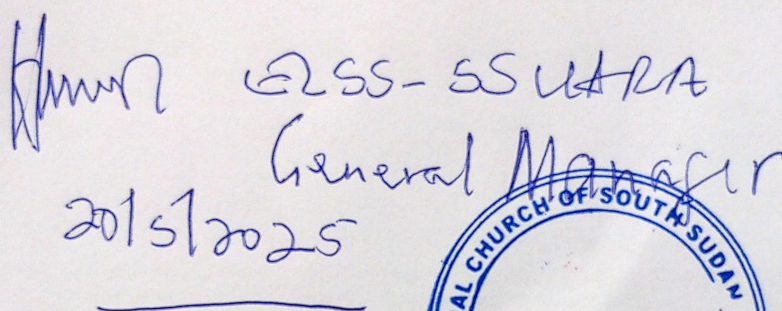 SSUHARA
General Manager
20/5/2025
AL CHURCH OF SOUTH SUDAN